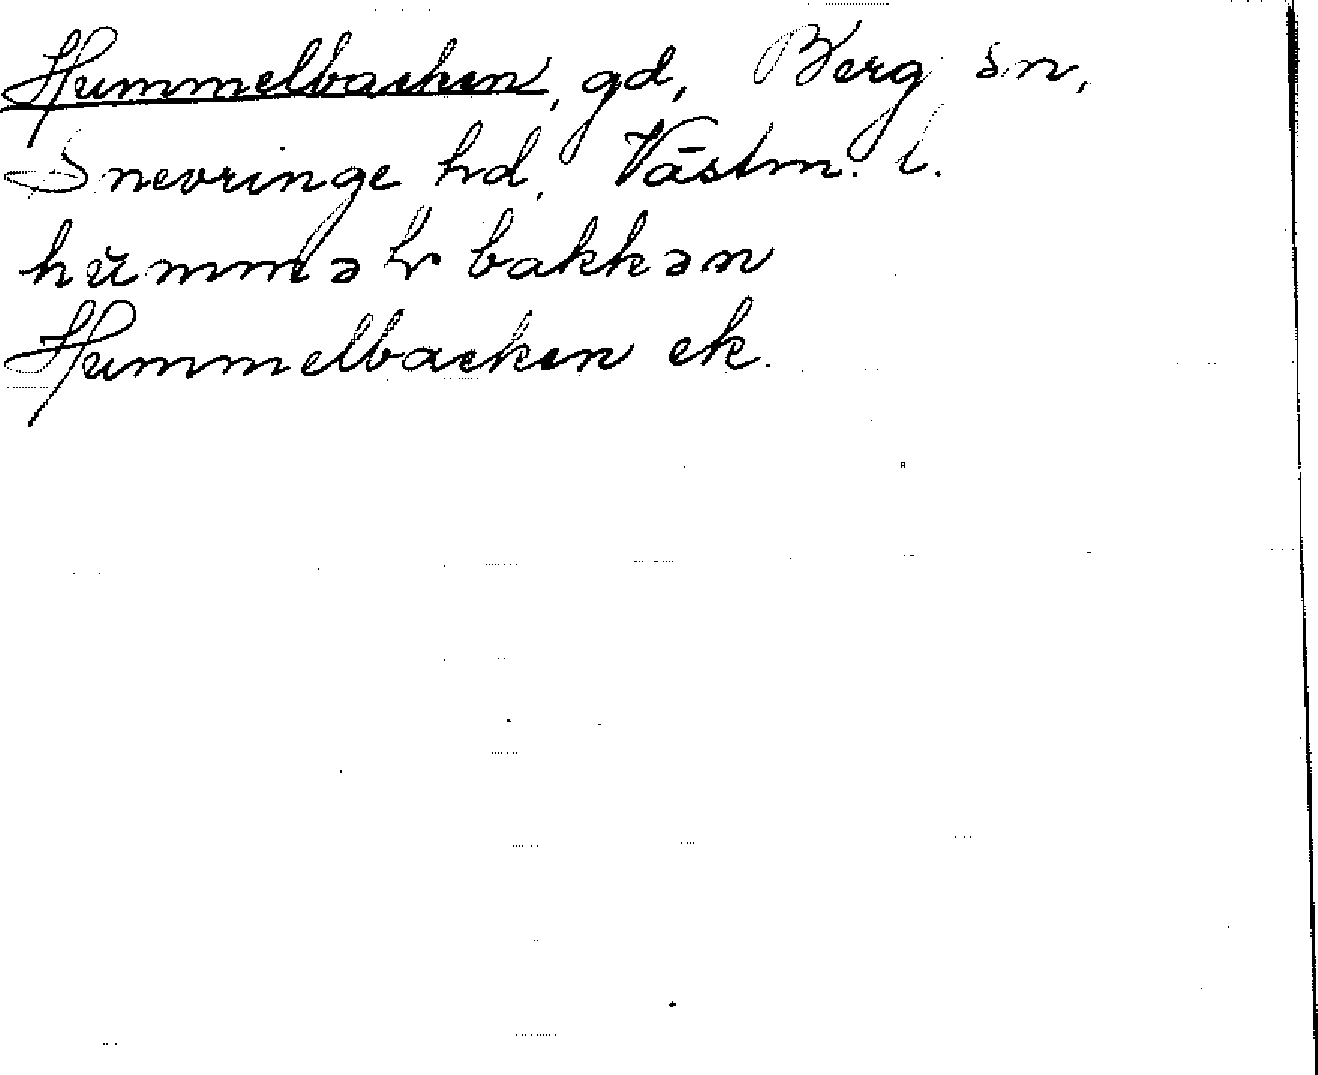 Hummelbacken, gd, Berg sn,
Snevringe hd, Västm. l.
hŭmməlv bakkən
Hummelbacken ek.